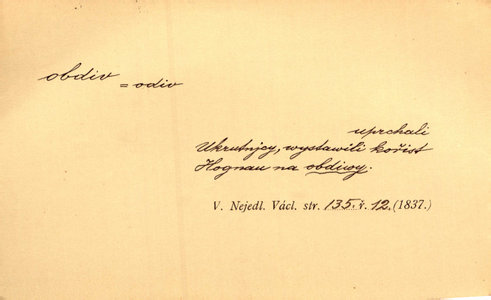 obdiv
= odiv
uprchali
Ukrutnjcy, wystawili kořist
Hognau na obdiwy.
V. Nejedl. Václ. str. 135. ř. 12. (1837.)